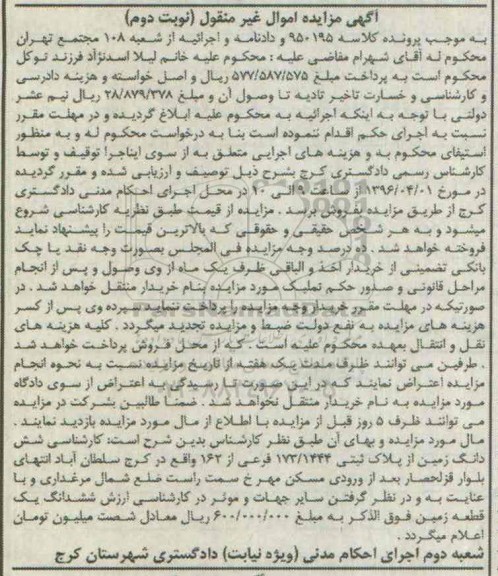 آگهی مزایده اموال غیر منقول (نوبت دوم)
به موجب پرونده کلاسه ۹۵۰۱۹۵ و دادنامه و اجرائیه از شعبه ۱۰۸ مجتمع تهران
محکوم له آقای شهرام مقاضی علیه : محکوم علیه خانم لیلا اسدنژاد فرزند توکل
محکوم است به پرداخت مبلغ ۵۷۷/۵۸۷/۵۷۵ ریال و اصل خواسته و هزینه دادرسی
و کارشناسی و خسارت تاخیر تادیه تا وصول آن و مبلغ ۲۸/۸۷۹/۳۷۸ ریال نیم عشر
دولتی با توجه به اینکه اجرائیه به محکوم علیه ابلاغ گردیده و در مهلت مقرر
نسبت به اجرای حکم اقدام ننموده است بنا به درخواست محکوم له و به منظور
استیفای محکوم به و هزینه های اجرایی متعلق به از سوی ایناجرا توقیف و توسط
کارشناس رسمی دادگستری کرج بشرح ذیل توصیف و ارزیابی شده و مقرر گردیده
در مورخ ۱۳۹۶/۰۴/۰۱ از ساعت الی ۱۰ در محل اجرای احکام مدنی دادگستری
کرج از طریق مزایده بفروش برسد . مزایده از قیمت طبق نظریه کارشناسی شروع
میشود و به هر شخص حقیقی و حقوقی که بالاترین قیمت را پیشنهاد نماید
فروخته خواهد شد . ده درصد وجه مزایده فی المجلس بصورت وجه نقد یا چک
بانکی تضمینی از خریدار اخذ و الباقی ظرف یک ماه از وی وصول و پس از انجام
مراحل قانونی و صدور حکم تملیک مورد مزایده بنام خریدار منتقل خواهد شد . در
صورتیکه در مهلت مقرر خریدار وجه مزایده را پرداخت ننماید سپرده وی پس از کسر
هزینه های مزایده به نفع دولت ضبط و مزایده تجدید میگردد . کلیه هزینه های
نقل و انتقال بعهده محکوم علیه است که از محل فروش پرداخت خواهد شد
. طرفین می توانند ظرف مدت یک هفته از تاریخ مزایده نسبت به نحوه انجام
مزایده اعتراض نمایند که در این صورت تا رسیدگی به اعتراض از سوی دادگاه
مورد مزایده به نام خریدار منتقل نخواهد شد . ضمنا طالبین بشرکت در مزایده
می توانند ظرف ۵ روز قبل از مزایده با اطلاع از مال مورد مزایده بازدید نمایند .
مال مورد مزایده و بهای آن طبق نظر کارشناس بدین شرح است: کارشناسی شش
دانگ زمین از پلاک ثبتی ۱۷۳/۱۴۴۴ فرعی از ۱۶۲ واقع در کرج سلطان آباد انتهای
بلوار قزلحصار بعد از ورودی مسکن مهر خ سمت راست ضلع شمال مرغداری و با
عنایت به و در نظر گرفتن سایر جهات و موثر در کارشناسی ارزش ششدانگ یک
قطعه زمین فوق الذکر به مبلغ ۶۰۰/۰۰۰/۰۰۰ ریال معادل شصت میلیون تومان
اعلام میگردد .
شعبه دوم اجرای احکام مدنی (ویژه نیابت) دادگستری شهرستان کرج